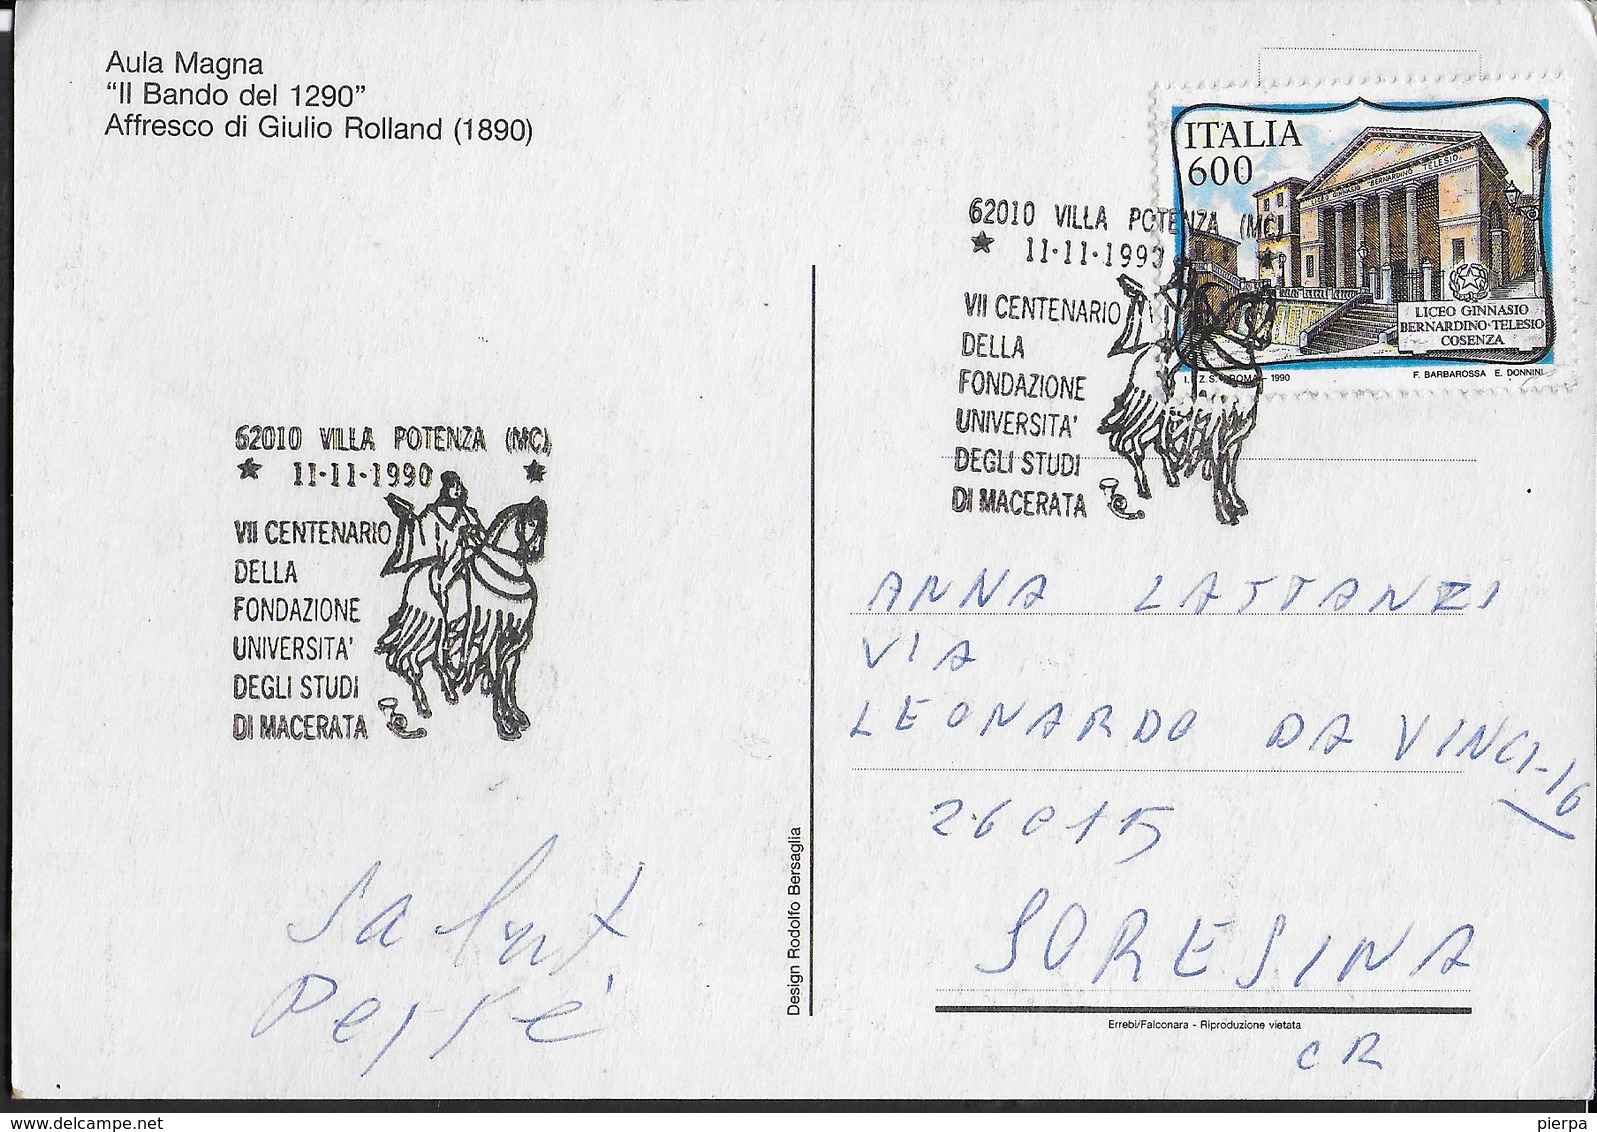 Aula Magna
“Il Bando del 1290”
Affresco di Giulio Rolland (1890)
ITALIA
600
LICEO GINNASIO BERNARDINO TELESIO
LICEO GINNASIO
BERNARDINO·TELESIO
COSENZA
I.P.Z.S. - ROMA - 1990
F. BARBAROSSA E. DONNINI
62010 VILLA POTENZA (MC)
11·11·1990
VII CENTENARIO
DELLA
FONDAZIONE
UNIVERSITA'
DEGLI STUDI
DI MACERATA
62010 VILLA POTENZA (MC)
11·11·1990
VII CENTENARIO
DELLA
FONDAZIONE
UNIVERSITA'
DEGLI STUDI
DI MACERATA
ANNA LATTANZI
VIA
LEONARDO DA VINCI-16
26015
SORESINA
CR
Saluti
Design Rodolfo Bersaglia
Errebi/Falconara - Riproduzione vietata
pierpa